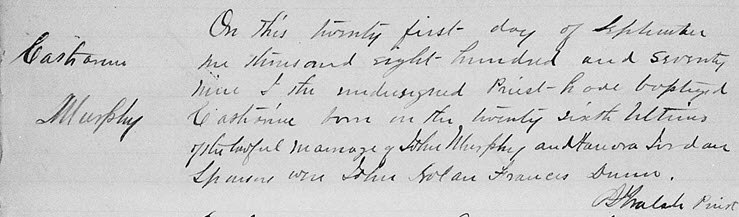 On this twenty first day of September
Catharine one thousand eight hundred and seventy
nine I the undersigned Priest have baptized
Murphy Catharine born on the twenty sixth Ultimo
of the lawful marriage of John Murphy and Hanora Jordan
Sponsors were John Nolan Frances Dunn.
Walsh Priest